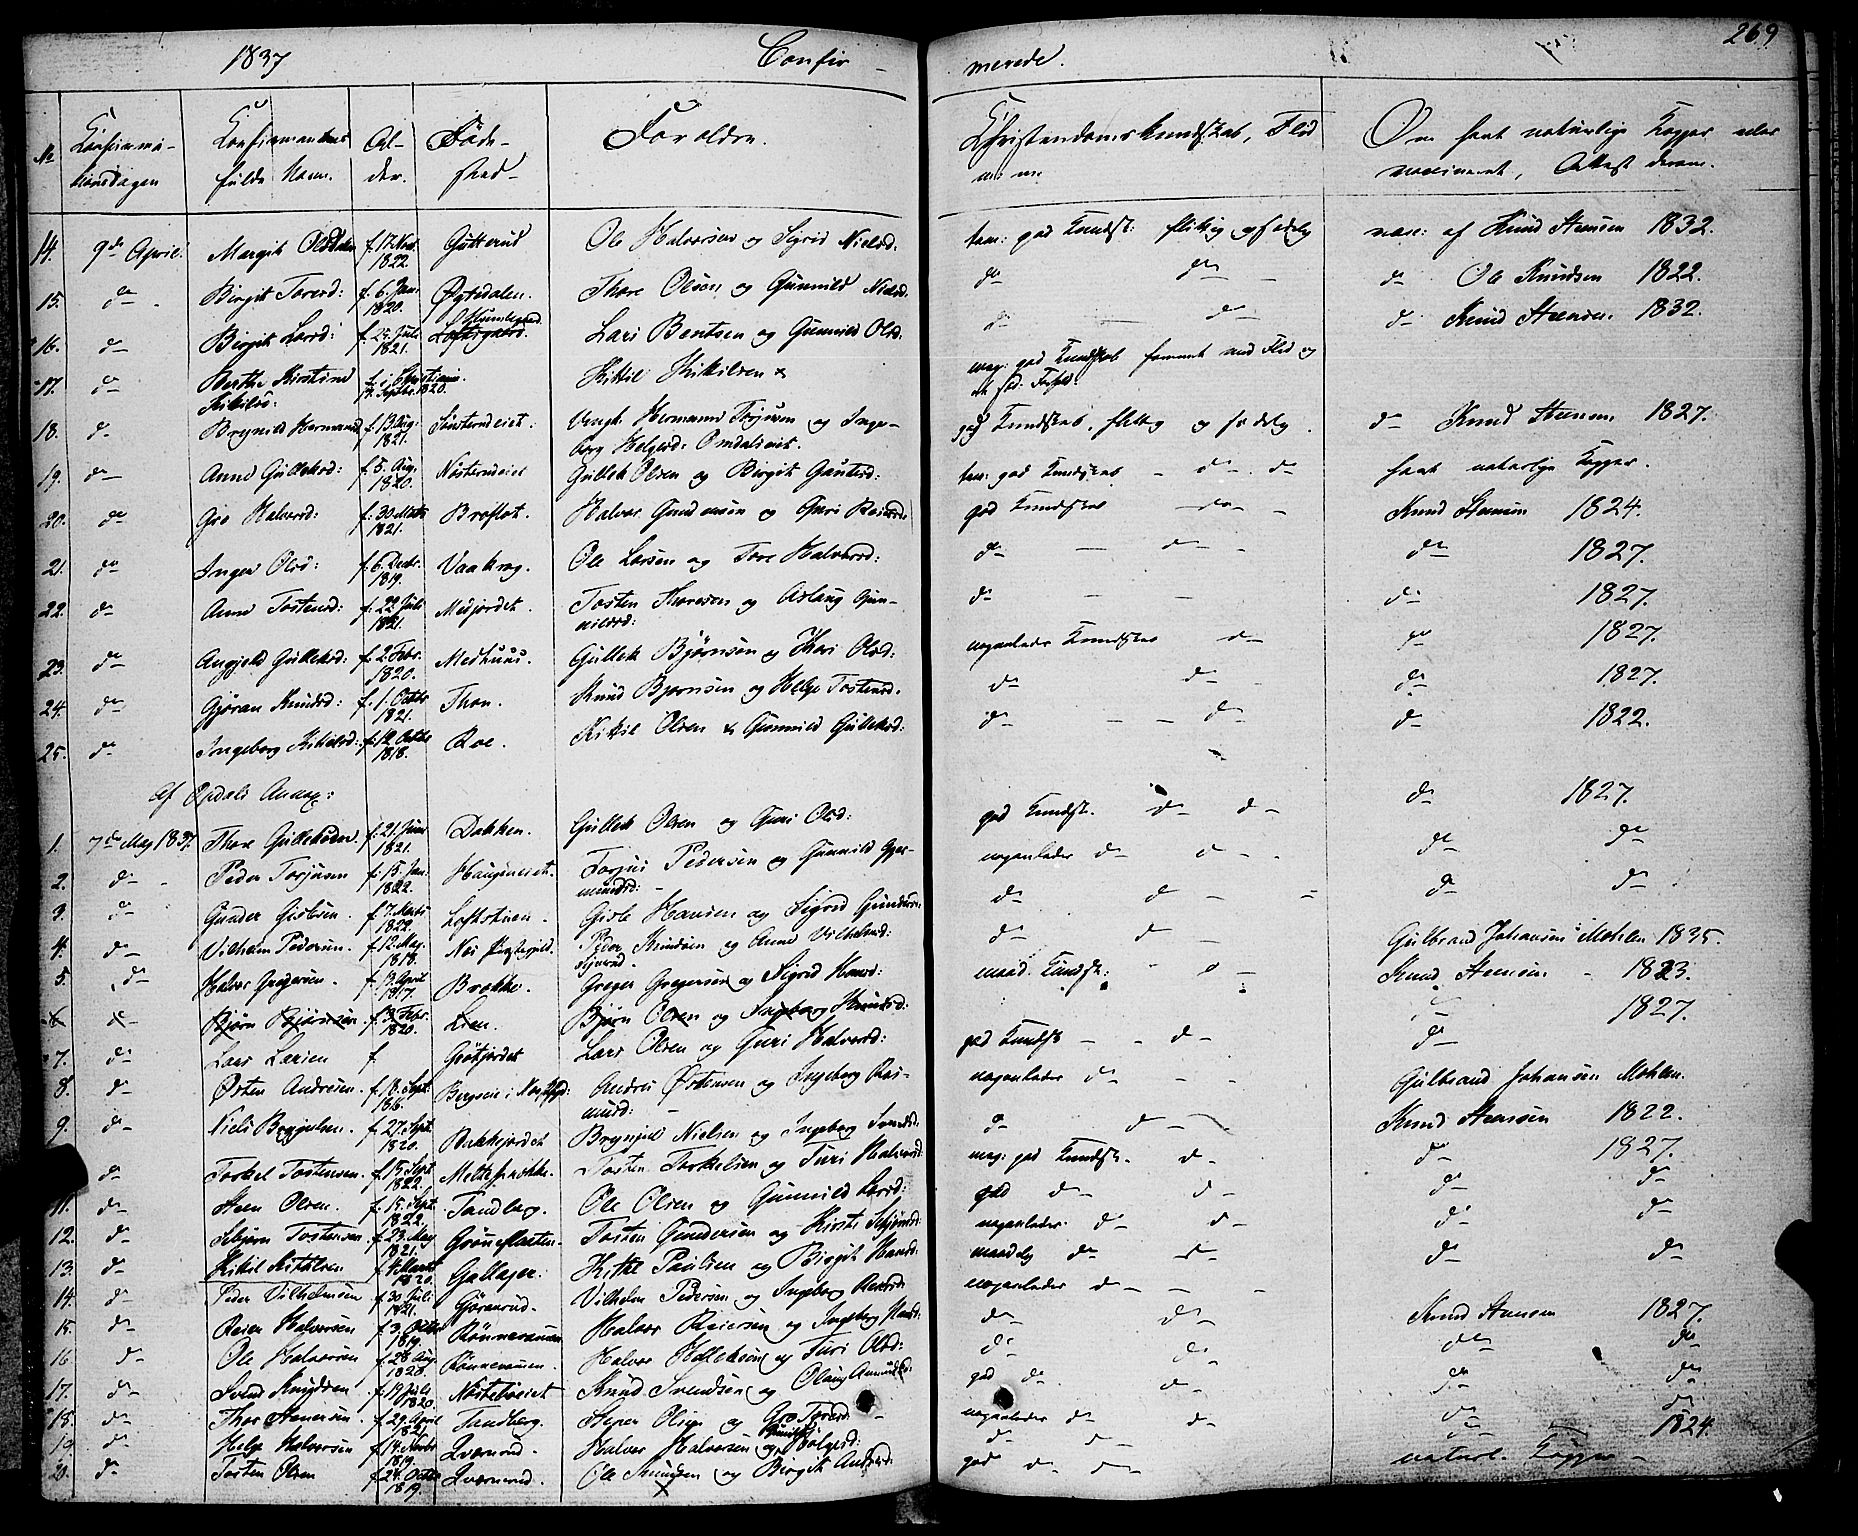 1837 Confir-merede. 269
No Confirmationsdagen Confirmantens fulde Navn. Alder. Fødested Forældre. Christendomskundskab, Flid m. m. Om havt naturlige Kopper eller vaccineret, Attest derom.
14. 9de April. Margit Olsdatter f. 17. Nov. 1822. Gutterud Ole Halvorsen og Sigrid Nielsd: tem: god Kundsk: flittig og sædelig vac: af Knud Steensen 1832.
15. do Birgit Toresd: f. 6. Jan. 1820. Øytedalen. Thore Olsen og Gunnild Nielsd. do do do Ole Knudsen 1822.
16. do Birgit Larsd: f. 24. Juli 1821. Lars Bentsen og Gunnild Olsd. do do do Knud Steensen 1832.
17. do Berthe Kirstine Kittilsd: f. i Christiania 14. Septbr. 1820. Kittil Kittilsen x meg: god Kundskab forenet med Flid og
18. do Brynild Hermand f. 13. Aug. 1821. Tønsterudeiet. Ungk. Hermand Torjusen og Ingeborg Helgesd: god Kundskab, flittig og sædelig. do Knud Steensen 1827.
19. do Anne Gulleksd: f. 5. Aug. 1820. Gullek Olsen og Birgit tem: god Kundskab do do havt naturlige Kopper.
20. do Gro Halvorsd: f. 30. Marts 1821. Broflot. Halvor Gundersen og Guri god Kundskab do Knud Steensen 1824.
21. do Inger Olsd: f. 6. Decbr. 1819. Vaakrog. Ole Larsen og Tore Halvorsd: do do do 1827.
22. do Anne Tostensd: f. 22. Juli 1821. Medjordet. Tosten Thoresen og Aslaug Gunnildsd: do do 1827.
23. do Angjeld Gulleksd: f. 2. Febr. 1820. Medhuus. Gullek Bjørnsen og Kari Olsd: nogenledes Kundskab do do 1827.
24. do Gjøran Knudsd: f. 1. Octbr 1821. Thon. Knud Bjørnsen og Helge Tostensd. do do do 1827.
25. do Ingeborg Kittilsd: f. 12. Octbr 1818. Roe. Kittil Olsen & Gunnild Gulleksd: do do do 1822.
Af Opdals Annex:
1. 7de May 1837. Thore Gulleksen f. 21. Juni 1821. Dokken. Gullek Olsen og Guri Olsd: god Kundsk. do do do 1827.
2. do Peder Torjusen f. 15. Jan. 1822. Haugeneiet. Torjus Pedersen og Gunnild Gjermundsd: nogenledes do do do do
3. do Gunder Gislesen. f. 7. Marts 1822. Loftstuen. Gisle Hansen og Sigrid Gundersd do do do do
4. do Vilhelm Pedersen. f. 12. May. 1818. Peder Knudsen og Anne Vilhelmsd: do do Gulbrand Johansen Mohlen 1835.
5. do Halvor Gregersen. f. 13. April 1817. Brække. Greger Gregersen og Sigrid Hansd: maad. Kundsk: do Knud Steensen 1823.
6 do Bjørn Bjørnsen f. 3. Febr. 1820. Lien. Bjørn Olsen og Ingeborg Knudsd: 1827.
7. do Lars Larsen f Grøtjordet Lars Olsen og Guri Halvorsd: god Kundsk do do
8. do Østen Andresen. f. 18. Sept. 1816. Andres Østensen og Ingeborg Rasmusd: nogenledes do Gulbrand Johansen Mohlen.
9. do Niels Brynjulsen. f. 27. Sept. 1820. Bakkejordet Brynjul Nielsen og Ingeborg Svendsd. do do Knud Steensen 1822.
do Torkel Tostensen. f. 15. Sept. 1822. Tosten Torkelsen og Turi Halvorsd: meg: god Kundsk. do do 1827.
11. do Steen Olsen. f. 15. Sept. 1822. Tandberg. Ole Olsen og Gunnild Larsd: god do do do do
12. do Sebjørn Tostensen. f. 23. May 1821. Grøneflaaten. Tosten Gundersen og Kirsti Sebjørnsd: nogenledes do do do do
13. do Kittil Kittilsen f. 4. Marts 1820. Gallager. Kittil Paulsen og Birgit Hansd: maadelig do do do do
14. do Peder Vilhelmsen f. 30. Juli 1821. Gjøranrud. Vilhelm Pedersen og Ingeborg nogenledes do
15. do Reier Halvorsen f. 3. Octbr 1819. Rønnevannen Halvor Reiersen og Ingeborg do do Knud Steensen 1827.
16. do Ole Halvorsen f. 28. Aug. 1820. Rønnevannen. Halvor og Turi Olsd: do do do do
17. do Svend Knudsen f. 19. Juli 1820. Nørstebøeiet Knud Svendsen og Olaug Aamundsd: god do do do do
18. do Thor Steensen f. 29. April 1821. Tandberg. Steen Olsen og Gro Toresd: nogenledes do do do do
19. do Helge Halvorsen f. 14. Novbr 1819. Qværnrud. Halvor Halvorsen og Gunnild Helgesd: do do do 1824.
20. do Tosten Olsen f. 24. Octbr 1819. Qværnrud. Ole Knudsen og Birgit Andersd: god do do naturl. Kopper